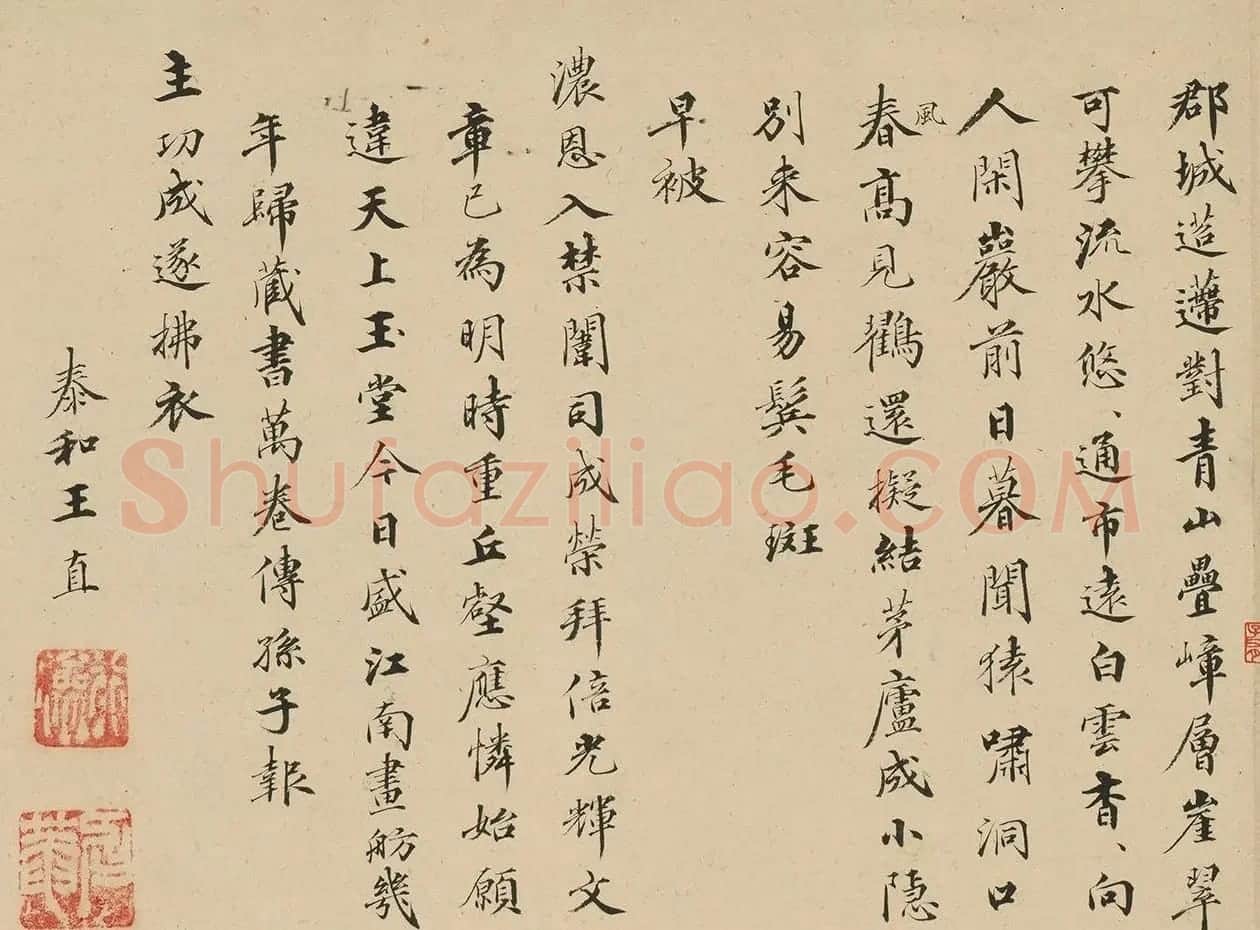 郡城迢遰對青山疊嶂層崖翠
可攀流水悠、通市遠白雲杳、向
人閑巖前日暮聞猿嘯洞口
春風高見鸛還擬結茅廬成小隱
別来容易鬓毛斑
早被
濃恩入禁闈司成榮拜倍光輝文
章已為明時重丘壑應憐始願
違天上玉堂今日盛江南畫舫幾
年歸藏書萬卷傳孫子報
主功成遂拂衣
泰和王直
Shufaziliao.COM